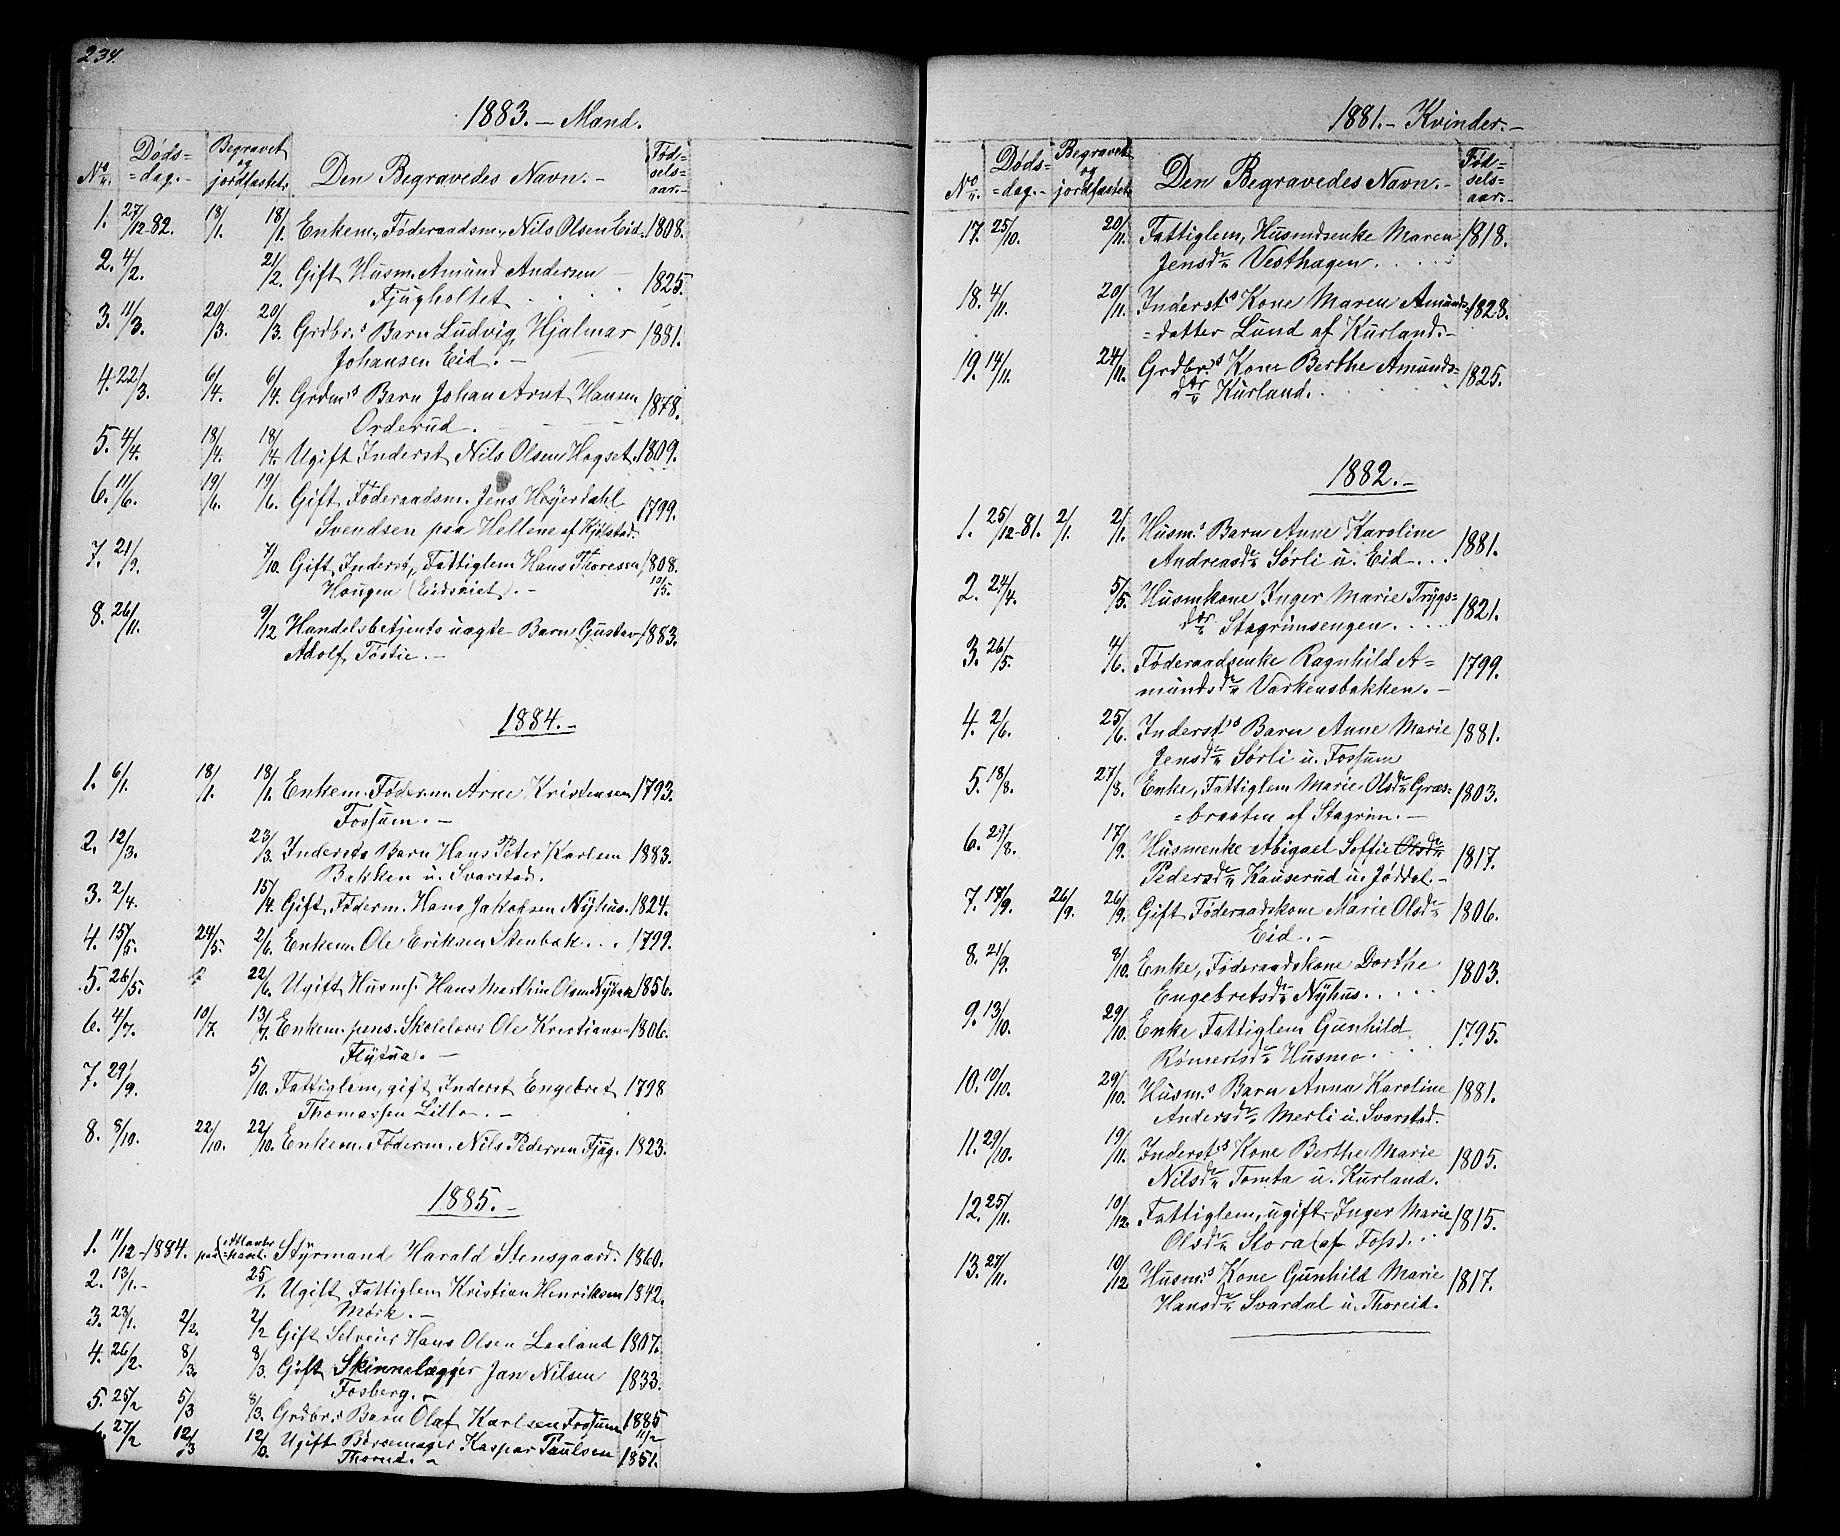 234.
1883. – Mænd.
No. Døds= =dag. – Begravet og jordfæstet. Den Begravedes Navn. – Fød= sels= aar. –
1. 27/12-82. 18/1. 18/1. Enkem., Føderaadsm., Nils Olsen Eid. 1808.
2. 4/2. 21/2. Gift Husm. Amund Andersen
Tjugholtet . . . . 1825.
3. 11/3. 20/3. 20/3. Grdbr.s Barn Ludvig Hjalmar
Johansen Eid. – 1881.
4. 22/3. 6/4. 6/4. Grdm.s Barn Johan Arnt Hansen
Orderud. 1878.
5. 4/4. 18/4. 18/4. Ugift Inderst Nils Olsen Hogset. 1809.
6. 11/6. 19/6. 19/6. Gift Føderaadsm. Jens Høyerdahl
Svendsen paa Hellene af Kjølstad. 1799.
7. 21/9. 7/10. Gift Inderst, Fattiglem Hans Thoresen
Hougen (Eidseiet). – 1808.
8. 26/11. 9/12 Handelsbetjents uægte Barn Gustav
Adolf Tostie. – 10/5. 1883.
1884. –
1. 6/1. 18/1. 18/1. Enkem.Føderm. Arne Kristensen
Fossum. – 1793.
2. 12/3. 23/3. Indersts Barn Hans Peter Karlsen
Bakken u. Svarstad. 1883.
3. 2/4. 15/4. Gift Føderm. Hans Jakobsen Nyhus. 1824.
4. 15/5. 24/5. 2/6. Enkem. Ole Eriksen Stenbæk . . . 1799.
5. 26/5. 22/6. Ugift Husm. Hans Marthin Olsen 1856.
6. 4/7. 10/7. 13/7. Enkem. pens. Skolelærer Ole Kristiansen
Flytua. – 1806.
7. 29/9. 5/10. Fattiglem, gift Inderst Engebret
Thomassen Lilla. – 1798
8. 8/10. 22/10. 22/10. Enkem. Føderm. Nils Pedersen Tjug. 1823.
1885. –
1. 11/12-1884. Styrmand Harald Stensgaard. 1860.
2. 13/1. – 25/1. Ugift Fattiglem Kristian Henriksen
Mørk. – 1842.
3. 23/1. 2/2. 2/2 Gift Selveier Hans Olsen Leeland 1807.
4. 26/2. 8/3. 8/3. Gift Skinnelægger Jan Nilsen
Fosberg. – 1833.
5. 25/2 5/3 8/3. Grdbr.s Barn Olaf Karlsen Fossum 1885 11/2
6. 27/2 12/3 12/3. Ugift Børsemager Kaspar Paulsen
Thorud. – 1851.
1881. – Kvinder. –
No. Døds= =dag. – Begravet og jordfæstet Den Begravedes Navn. – Fød= sels= aar. –
17. 25/10. 20/11. Fattiglem, Husmdsenke Maren
Jensdr. Vesthagen. . . . . 1818.
18. 4/11. 20/11. Inderst.s Kone Maren Amunds=
=datter Lund af Kurland. – 1828.
19. 14/11. 24/11. Grdbr.s Kone Berthe Amunds=
dtr. Kurland. 1825.
1882. –
1. 25/12-81. 2/1. 2/1. Husm.s Barn Anne Karoline
Andreasdr. Sørli u. Eid . . . 1881.
2. 24/4. 5/5. Husmkone Inger Marie Trygs=
dtr. Stagrimsengen. . . . 1821.
3. 26/5. 4/6. Føderaadsenke Ragnhild A=
mundsdr. Varkensbakken. – 1799.
4. 2/6. 25/6. Inderst.s Barn Anne Marie
Jensdr. Sørli u. Fossum 1881.
5. 18/8. 27/8. Enke, Fattiglem Marie Olsdr. Græs=
=braaten af Stagrim. – 1803.
6. 29/8. 17/9. Husmenke Abigael Soffie Olsdr.
Pedersdr. Kauserud u. Jøddal. – 1817.
7. 18/9. 26/9. 26/9. Gift Føderaadskone Marie Olsdr.
Eid. – 1806.
8. 21/9. 8/10. Enke, Føderaadskone Dorthe
Engebretsdr. Nyhus. . . . . 1803.
9. 13/10. 29/10. Enke Fattiglem Gunhild
Rømertsdr. Husmo. . . . 1795.
10. 10/10. 29/10. Husm.s Barn Anna Karoline
Andersdr. Merli u. Svarstad. 1881.
11. 29/10. 19/11. Inderst.s Kone Berthe Marie
Nilsdr. Tomta u. Kurland. 1805.
12. 25/11. 10/12. Fattiglem, ugift Inger Marie
Olsdr. Stora (af Foss) . . . 1815.
13. 27/11. 10/12 Husm.s Kone Gunhild Marie
Hansdr. Svardal u. Thoreid. 1817.